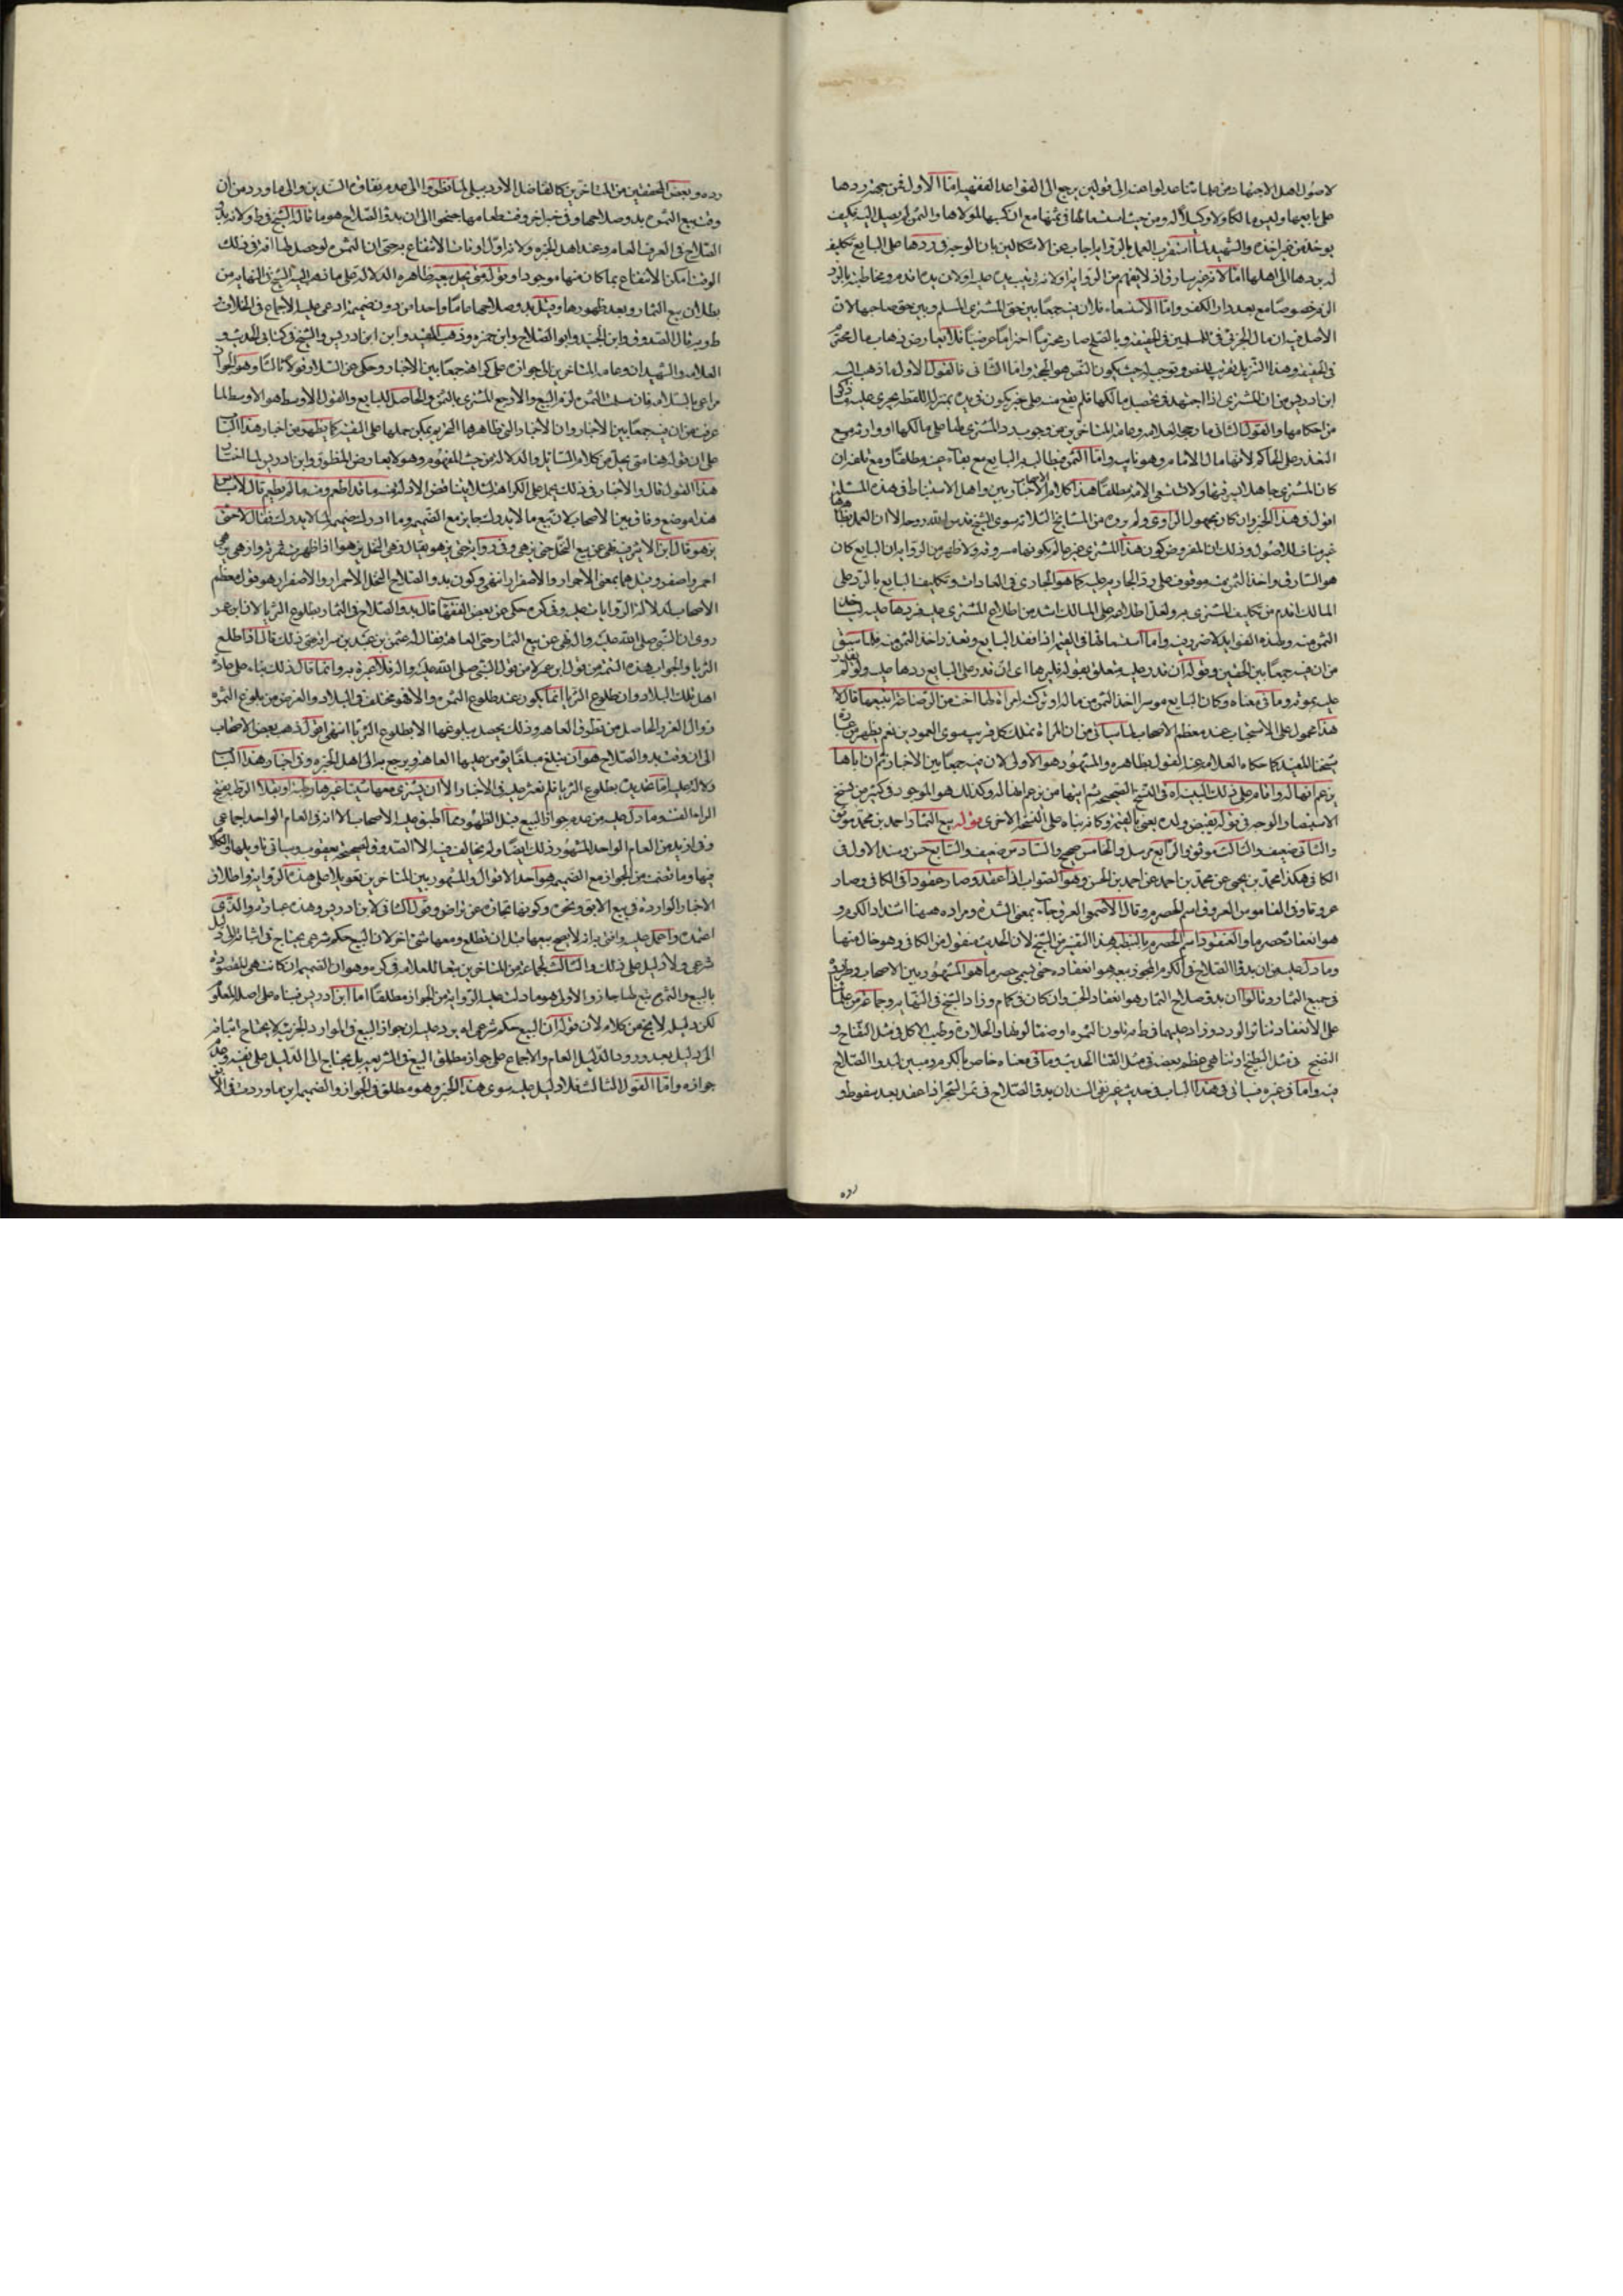 لاصول اهل الاجتهاد من علمائنا عدلوا عنه الى قولين يرجع الى القواعد الفقهية امّا الاول فمن جهة ردها
على بايعها وليس مالكا ولا وكيلا له ومن حيث استسعائها في ثمنها مع ان كسبها لمولاها والثمن لم يصل اليه فكيف
يوخذ من غير اخذه والشهيد لما استقرب العمل بالرواية اجاب عن الاشكالين بان الوجه في ردها على البايع تكليفه
له بردها الى اهلها امّا لانه سارق اذ لا يفهم من الرواية او لانه ترتبت يده عليه او لان يده اقدم ومخاطبته بالرد
الزم خصوصا مع بعد دار الكفر وامّا الاستسعاء فلان فيه جمعًا بين حق المشترى المسلم وبين حق صاحبها لان
الاصل فيه ان مال الحربي فئ للمسلمين في الحقيقة وبالصلح صار محترمًا احترامًا عرضيًا فلا يعارض ذهاب مال محترم
في الحقيقة وهذا التنزيل تقريب للنص وتوجيه له حيث يكون النص هو الحجة وامّا الثاني فالقول الاول ما ذهب اليه
ابن ادريس من ان المشترى اذا اجتهد في تحصيل مالكها فلم يقع منه على خبر يكون في يده بمنزلة اللقطة يجرى عليه ما ذكر
من احكامها والقول الثاني ما رجحه العلامه وعامة المتاخرين من وجوب رد المشترى لها على مالكها او وارثه ومع
التعذر على الحاكم لانها مال الامام وهو نايب وامّا الثمن فيطالب به البايع مع بقاء عينه مطلقًا ومع تلفه ان
كان المشترى جاهلا بسرقتها ولا تستسعى الامة مطلقًا هذا كلام الاصحاب الاخباريين واهل الاستنباط في هذه المسئلة
اقول وهذا الخبر وان كان مجهول الراوى ولم يروه من المشايخ الثلاثة سوى الشيخ قدس الله روحه الا ان العمل بظاهرها
غير مناف للاصول وذلك ان المفروض كون هذا المشترى غير عالم بكونها مسروقة ولا يظهر من الرواية ان البايع كان
هو السارق واخذ الثمن منه موقوف على رد الجاريه عليه كما هو الجارى في العادات وتكليف البايع بالرد على
المالك اقدم من تكليف المشترى به ولعل اطلاعه على المالك اشد من اطلاع المشترى عليه فردها عليه لياخذ
الثمن منه ولهذه الفوايد لا ضرر فيه وامّا استسعائها في القيمة اذا فقد البايع وتعذر اخذ الثمن منه فلما سبق
من ان فيه جمعًا بين الحقين وقوله ان قدر عليه متعلق بقوله فليردها اى ان قدر على البايع ردها عليه ولو لم يقدر
عليه بموته وما في معناه وكان البايع موسرا اخذ الثمن من ماله او تركته امراة لها اخت من الرضاعة ابتبيعها قال لا
هذا محمول على الاستحباب عند معظم الاصحاب لما سياتى من ان المراة تملك كل قريب سوى العمودين نعم يظهر من عبارة
شيخنا المفيد كما حكاه العلامه عنه القول بظاهره والمشهور هو الاولى لان فيه جمعًا بين الاخبار ثم ان اباها
يزعم انها له واقام على ذلك البينه اه في النسخ الصحيحة ثم ابنها من يزعم انها له وكذلك هو الموجود في كثير من نسخ
الاستبصار والوجه في قوله يقبض ولده يعنى بالقيمة وكانه بناه على النسخة الاخرى قوله بيع الثمار احمد بن محمد موثق
والثاني ضعيف والثالث موثق والرابع مرسل والخامس صحيح والسادس ضعيف والسابع حسن وسند الاول في
الكافي هكذا محمد بن يحيى عن محمد بن احمد عن احمد بن الحسن وهو الصواب اذا عقد وصار عقودا في الكافي وصار
عروقا وفي القاموس العروق اسم الحصرم وقال الاصمعي العرق جاء بمعنى الشدة ومراده ههنا اشتداد الكرم و
هو انعقاد حصرمها والعقود اسم الحصرم بالنبطية هذا التفسير من الشيخ لان الحديث منقول من الكافي وهو خال منها
وما دل عليه من ان بدو الصلاح في الكرم المجوز بيعه هو انعقاده حتى يسمى حصرما هو المشهور بين الاصحاب وطردوه
في جميع الثمار وقالوا ان بدو صلاح الثمار هو انعقاد الحب وان كان في كمام وزاد الشيخ في النهاية وجماعة من علمائنا
على الانعقاد تناثر الورد وزاد عليهما في ط تلون الثمره او صفاء لونها والحلاوة وطيب الاكل في مثل التفاح و
النضج في مثل البطيخ او تناهى عظم بعضه في مثل القثا الحديث وما في معناه خاص بالكرم ومبين لبدو الصلاح
فيه واما في غيره فسياتى في هذا الباب في حديث غير نقي السند ان بدو الصلاح في ثمر الشجر اذا عقد بعد سقوط و
رده
رده وبعض المحققين من المتاخرين كالفاضل الاردبيلى لما نظروا الى عدم نقاوة السندين والى ما ورد من ان
وقت بيع الثمره بدو صلاحها وفي خبر اخر وقت طعامها جنحوا الى ان بدو الصلاح هو ما قاله الشيخ في ط ولانه بدو
الصلاح في العرف العام وعند اهل الخبره ولانه اول اوقات الانتفاع به حتى ان الثمره لو حصل لها افة في ذلك
الوقت امكن الانتفاع بما كان منها موجودا وقوله متى يحل بيعه ظاهره الدلاله على ما ذهب اليه الشيخ في النهاية من
بطلان بيع الثمار وبعد ظهورها وقبل بدو صلاحها عاما واحدا من دون ضميمة وادعى عليه الاجماع في الخلاف
ط وبه قال الصدوق وابن الجنيد وابو الصلاح وابن حمزه وذهب المفيد وابن ادريس والشيخ في كتابي الحديث و
العلامه والشهيدان وعامة المتاخرين الى جوازه على كراهة جمعًا بين الاخبار وحكى عن السلار قولا ثالثا وهو الجواز
مراعى بالسلامه فان سلمت الثمره لزم البيع والا رجع المشترى بالثمن والحاصل للبايع والقول الاوسط هو الاوسط لما
عرفت من ان فيه جمعًا بين الاخبار وان الاخبار التي ظاهرها التحريم يمكن حملها على التقيه كما يظهر من اخبار هذا الباب
على ان قوله هنا متى يحل من كلام السائل والدلاله من حيث المفهوم وهو لا يعارض المنطوق وابن ادريس لما اختار
هذا القول قال والاخبار في ذلك تحمل على الكراهة لئلا يتناقض الادلة فمنه ما قد اطعم ومنه ما لم يطعم قال لا باس
هذا موضع وفاق بين الاصحاب لان بيع ما لا يدرك جايز مع الضميمة وما ادرك ضميمة لما لا يدرك فقال لا حتى
يزهو قال ابن الاثير فيه نهى عن بيع النخل حتى يزهى وفي رواية حتى يزهو يقال زهى النخل يزهو اذا ظهرت ثمرته وازهى يزهى
احمر واصفر وقيل هما بمعنى الاحمرار والاصفرار انتهى وكون بدو الصلاح النخل الاحمرار والاصفرار هو قول معظم
الاصحاب لدلالة الروايات عليه وفي كره حكى عن بعض الفقها قال بدو الصلاح في الثمار بطلوع الثريا لان ابن عمر
روى ان النبى صلى الله عليه واله نهى عن بيع الثمار حتى العاهة فقال له عثمن بن عبد بن سراقه متى ذلك قال اذا طلع
الثريا والجواب هذه التتمة من قول ابن عمر لا من قول النبى صلى الله عليه واله فلا عبرة به وانما قال ذلك بناء على عادة
اهل تلك البلاد وان طلوع الثريا انما يكون عند طلوع الثمره والا فهو مختلف في البلاد والغرض من بلوغ الثمره
زوال الغرر الحاصل من تطرق العاهه وذلك يحصل ببلوغها لا بطلوع الثريا انتهى اقول ذهب بعض الاصحاب
الى ان وقت بدو الصلاح هو ان يبلغ مبلغًا يؤمن عليها العاهة ويرجع به الى اهل الخبره وفي اخبار هذا الباب
دلالة عليه امّا تحديده بطلوع الثريا فلم نعثر عليه في الاخبار الا ان يشترى معها شيئا غيرها رطبة او بقلا الرطبة بفتح
الراء القت وما دل عليه من عدم جواز البيع قبل الظهور مما اطبق عليه الاصحاب الا انه في العام الواحد اجماعى
وفي ازيد من العام الواحد المشهور ذلك ايضًا ولم يخالف فيه الا الصدوق لصحيحة يعقوب وسياتى تاويلها والكلام
فيها وما تضمنت من الجواز مع الضميمة هو احد الاقوال والمشهور بين المتاخرين تعويلا على هذه الرواية واطلاق
الاخبار الوارده في بيع الابق ونحوه وكونها تجارة عن تراض وقول الثاني لابن ادريس وهذه عبارته والذى
اعتمده واعمل عليه وافتى به انه لا يصح بيعها قبل ان تطلع ومعها شئ اخر لان البيع حكم شرعى يحتاج في اثباته الى دليل
شرعى ولا دليل على ذلك والثالث لجماعة من المتاخرين تبعا للعلامه في كره وهو ان الضميمة ان كانت هى المقصودة
بالبيع والثمره تبع لها جاز والاول هو ما دلت عليه الرواية من الجواز مطلقًا امّا ابن ادريس فبناه على اصله المعلوم
لكن دليله لا يخ من كلام لان قوله ان البيع حكم شرعى اه يرد عليه ان جواز البيع في الموارد الجزئية لا يحتاج اثباته
الى دليل بعد ورود الدليل العام والاجماع على جواز مطلق البيع في الشريعه بل يحتاج الى الدليل على نفيه وعدم
جوازه وامّا القول الثالث فلا دليل عليه سوى هذا الخبر وهو مطلق في الجواز والضميمة اين ما وردت في الا